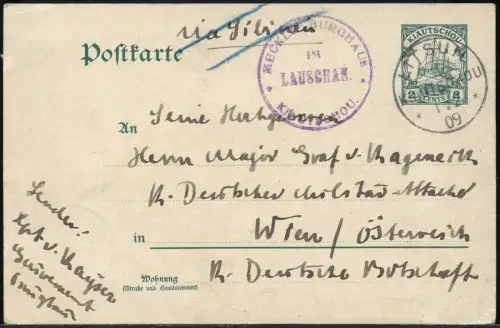 via Sibirien
Postkarte
MECKLENBURGHAUS
IN
LAUSCHAN.
KIAUTSCHOU.
KIAUTSCHOU
2 CENTS 2
LITSUN
KIAUTSCHOU
09
An Seine Hochgeboren
Herrn Major Graf v. Kageneck
K. Deutscher Militär-Attaché
in Wien / Österreich
K. Deutsche Botschaft
Wohnung
(Straße und Hausnummer)
Sender:
Kpt v.
Gouvernement
Tsingtau